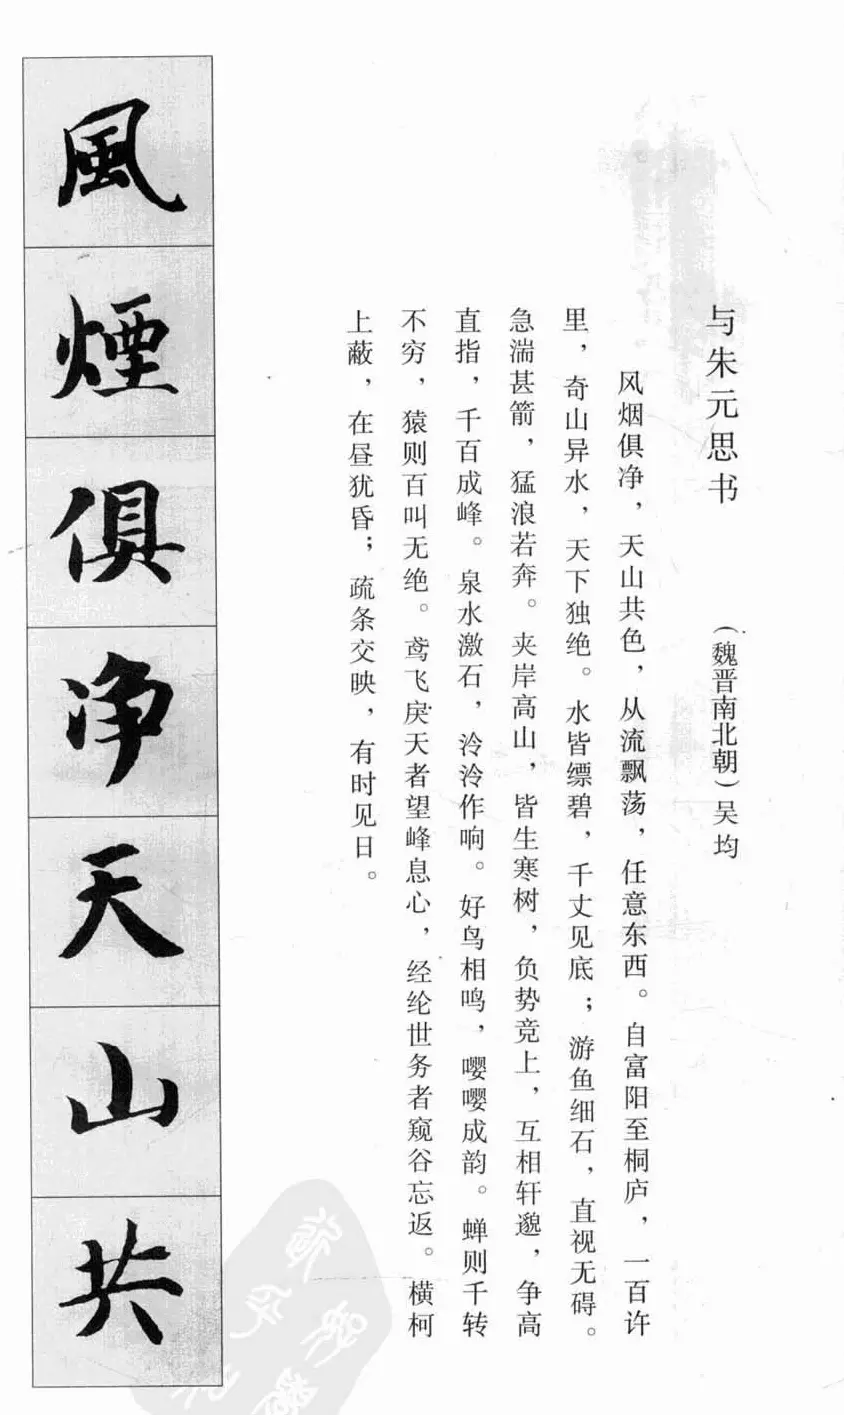 与朱元思书 （魏晋南北朝）吴均
风烟俱净，天山共色，从流飘荡，任意东西。自富阳至桐庐，一百许
里，奇山异水，天下独绝。水皆缥碧，千丈见底；游鱼细石，直视无碍。
急湍甚箭，猛浪若奔。夹岸高山，皆生寒树，负势竞上，互相轩邈，争高
直指，千百成峰。泉水激石，泠泠作响。好鸟相鸣，嘤嘤成韵。蝉则千转
不穷，猿则百叫无绝。鸢飞戾天者望峰息心，经纶世务者窥谷忘返。横柯
上蔽，在昼犹昏；疏条交映，有时见日。
風煙俱净天山共